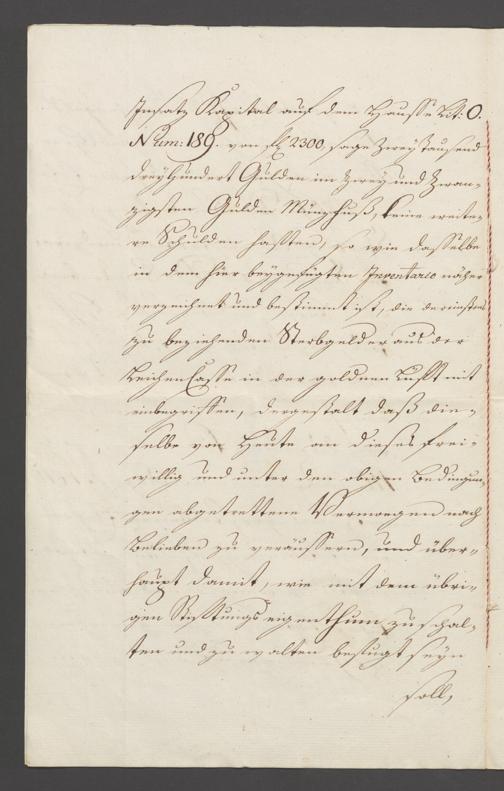 Insatz Kapital auf dem Hausse Lit: O.
Num: 189. von fl 2300, sage Zwey Tausend
dreyhundert Gulden im Zwey und Zwan¬
zigsten Gulden Münzfuß, keine weite¬
re Schulden haften, so wie dasselbe
in dem hier beygefügten Inventario näher
verzeichnet und bestimmt ist, die dereinstens
zu beziehenden Sterbgelder aus der
Leichen Casse in der goldnen Luft mit
einbegriffen, dergestalt daß die¬
selbe von Heute an dieses frei¬
willig und unter den obigen Bedingun¬
gen abgetrettene Vermoegen nach
Belieben zu veräussern, und über¬
haupt damit, wie mit dem übri¬
gen Stiftungs eigenthum zu schal¬
ten und zu walten befugt seyn
soll,